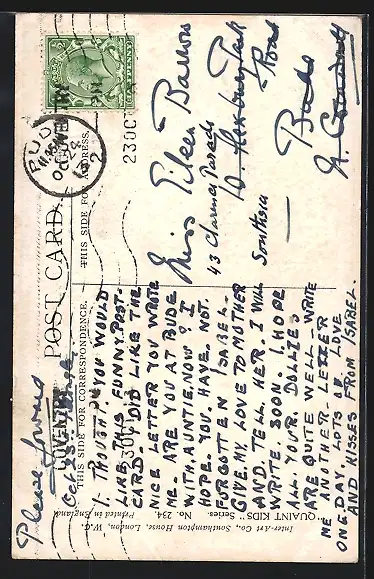 Please forward
if gone
POST CARD.
THIS SIDE FOR CORRESPONDENCE.
THIS SIDE FOR ADDRESS.
HALF PENNY
BUDE
23 OCT
I. THOUGHT. YOU WOULD
LIKE. THIS FUNNY. POST-
CARD. I DID LIKE. THE
NICE LETTER YOU WROTE
ME. ARE YOU AT BUDE
WITH. AUNTIE. NOW? I
HOPE. YOU. HAVE. NOT.
FORGOTTEN ISABEL.
GIVE. MY. LOVE TO MOTHER
AND. TELL. HER. I WILL
WRITE. SOON I. HOPE
ALL. YOUR. DOLLIES
ARE QUITE WELL - WRITE
ME ANOTHER LETTER
ONE. DAY. LOTS OF LOVE
AND KISSES FROM ISABEL.
Miss Eileen Barrow
43 Clarence Parade
Southsea
Road
Bude
N. Cornwall
Inter-Art Co., Southampton House, London, W.C.
"QUAINT KIDS" Series No. 234. Printed in England